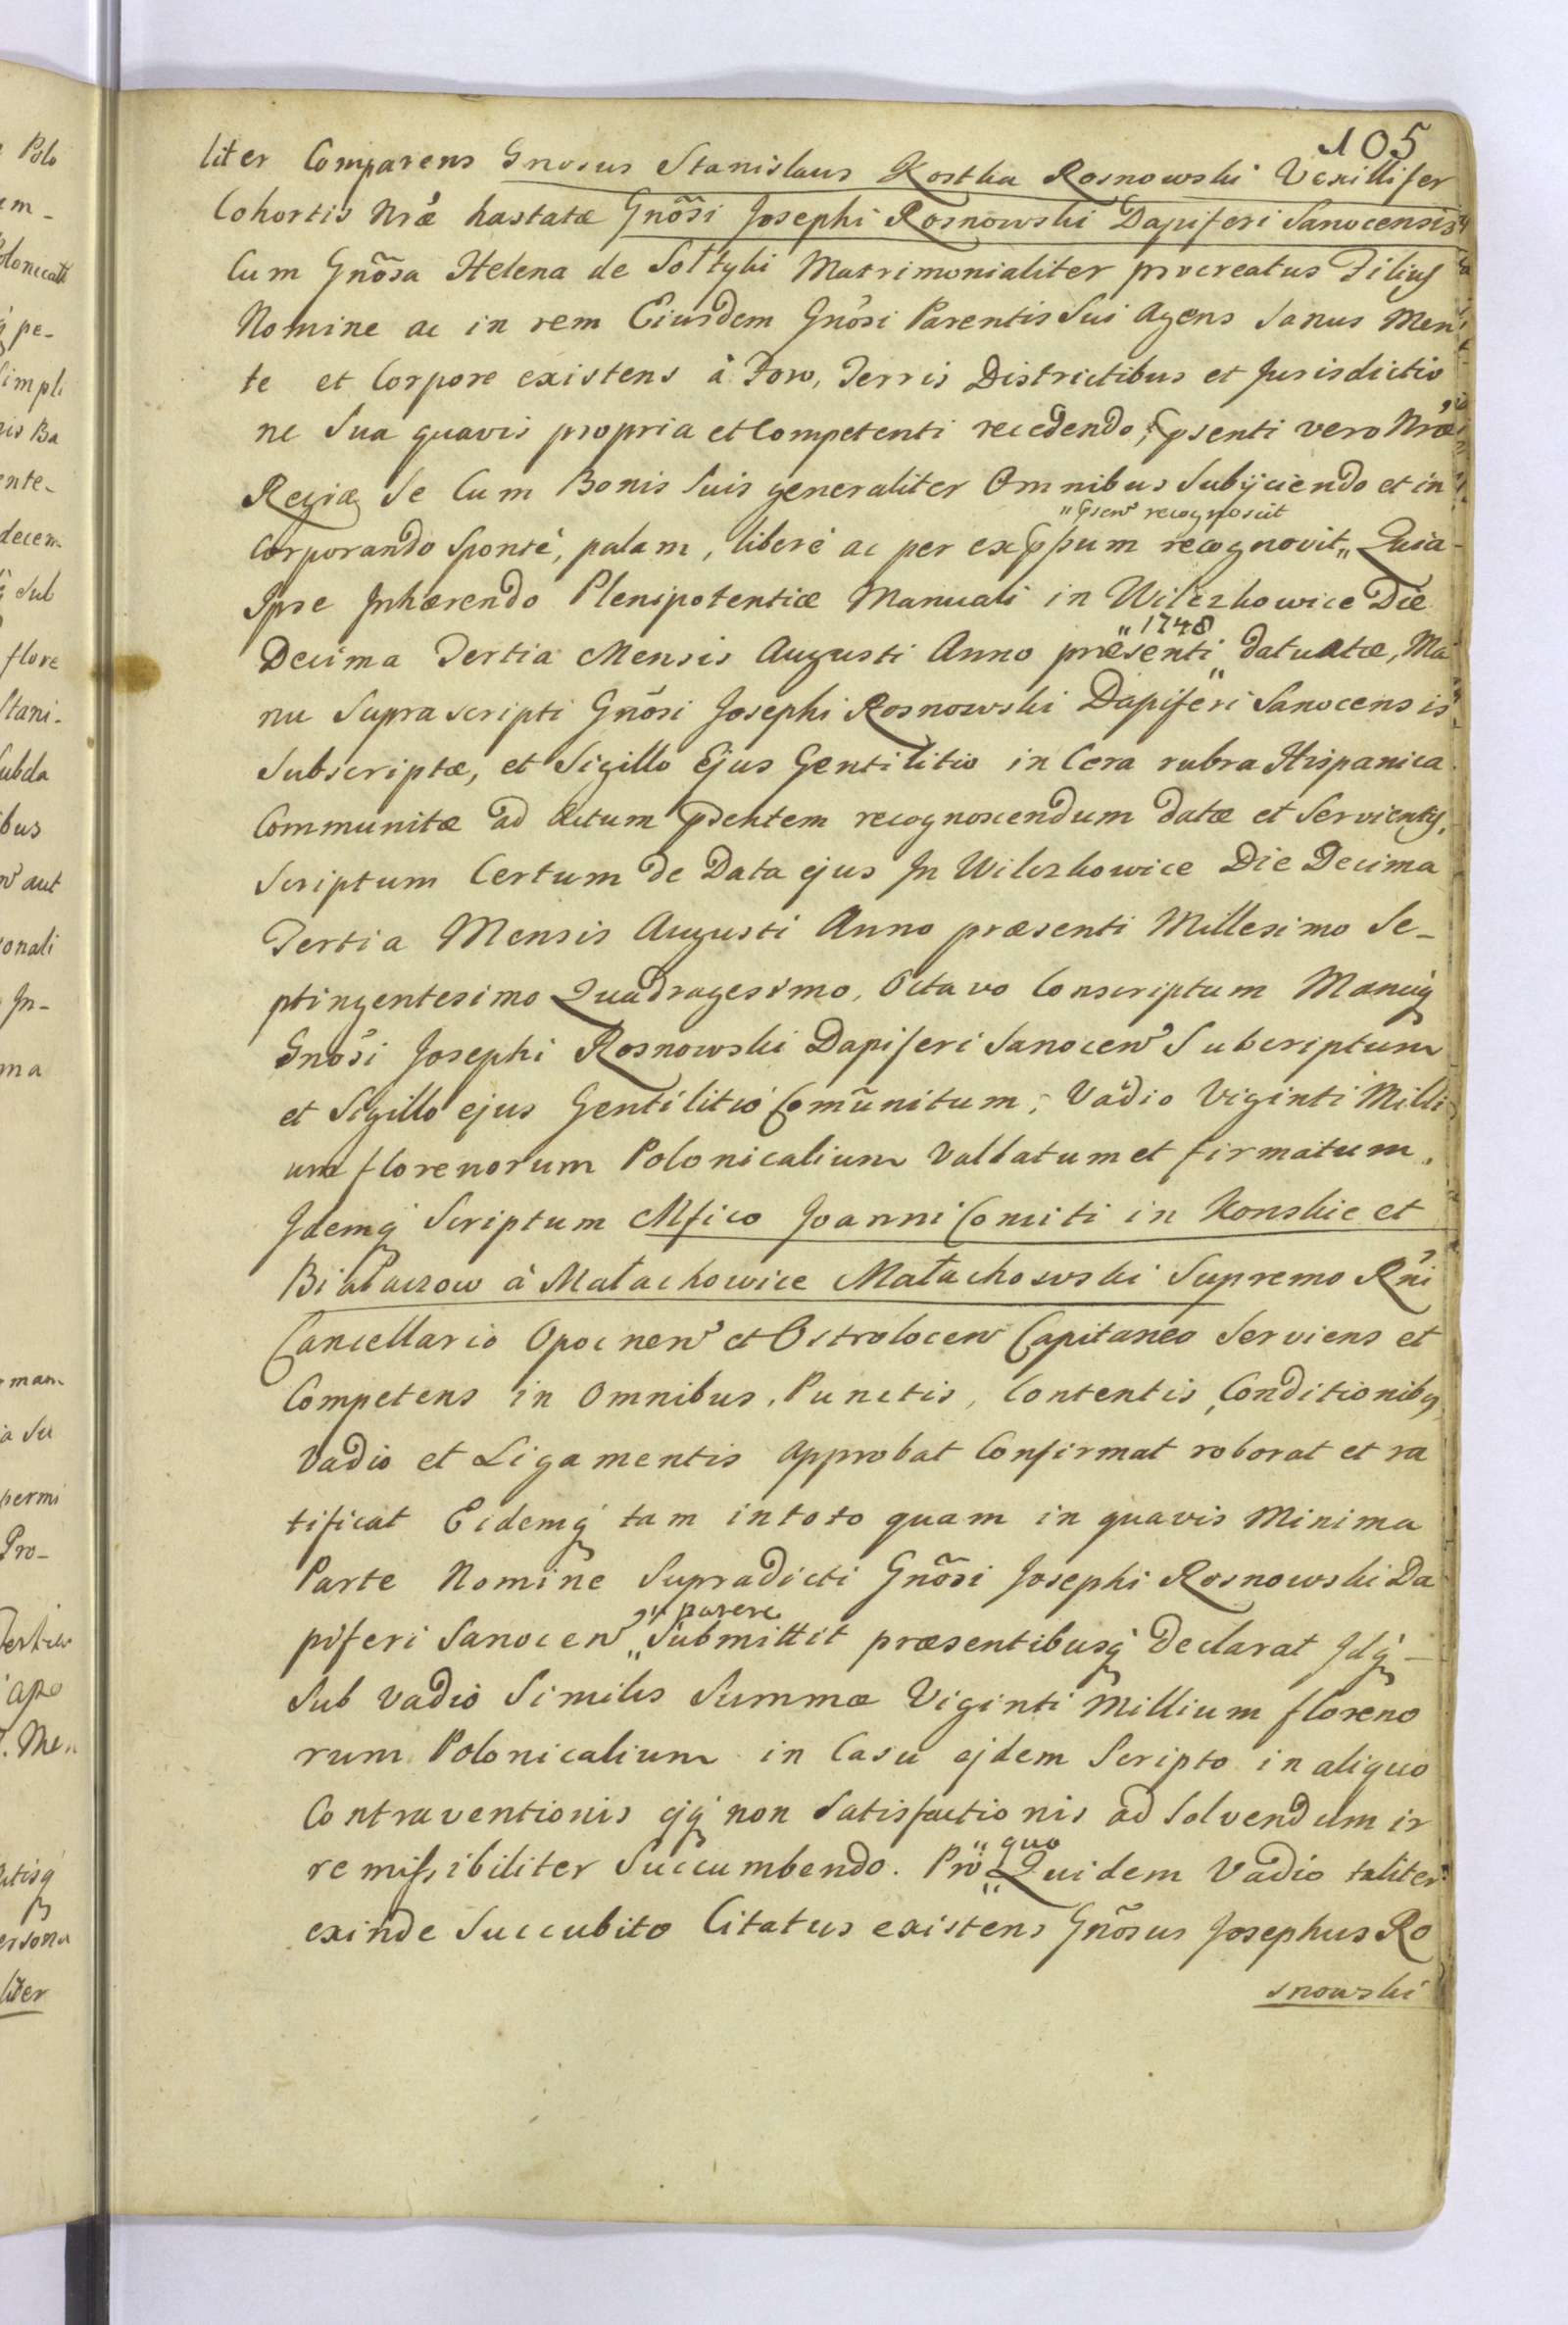 105
liter Comparens Gnosus Stanislaus Kostka Rosnowski Vexillifer
Cohortis Nræ hastatæ Gnõsi Josephi Rosnowski Dapiferi Sanocensis
Cum Gnõsa Helena de Sołtyki Matrimonialiter procreatus Filius
Nomine ac in rem Eiusdem Gnõsi Parentis Sui Agens Sanus Men
te et Corpore existens à Foro, Terris Districtibus et Jurisdictio
ne Sua quavis propria et Competenti recedendo, psenti vero Nræ
Regiæ Se Cum Bonis Suis generaliter Omnibus Subijciendo et in
"psen recognoscit
Corporando Sponte, palam, libere ac per expssum recognovit" Quia
Ipse Inhærendo Plenipotentiæ Manuali in Wilczkowice Die
"1748
Decima Tertia Mensis Augusti Anno præsenti" datuatæ, Ma
nu Suprascripti Gnõsi Josephi Rosnowski Dapiferi Sanocensis
Subscriptæ, et Sigillo Ejus Gentilitio in Cera rubra Hispanica
Communitæ ad Actum psentem recognoscendum datæ et Servientis,
Scriptum Certum de Data ejus In Wilczkowice Die Decima
Tertia Mensis Augusti Anno præsenti Millesimo Se-
ptingentesimo Quadragesimo, Octavo Conscriptum Manuq
Gnosi Josephi Rosnowski Dapiferi Sanocen Subscriptum
et Sigillo ejus Gentilitio Comũnitum, Vadio Viginti Milli
um florenorum Polonicalium Vallatum et firmatum.
Idemq Scriptum Mfico Joanni Comiti in Konskie et
Białaczow à Małachowice Małachowski Supremo Rni
Cancellario Opocnen et Ostrolocen Capitaneo Serviens et
Competens in Omnibus, Punctis, Contentis, Conditionibq
Vadio et Ligamentis Approbat Confirmat roborat et ra
tificat Eidemq tam in toto quam in quavis Minima
Parte Nomine Supradicti Gnõsi Josephi Rosnowski Da
"parere
piferi Sanocen "Submittit præsentibusq Declarat Idq -
Sub Vadio Similis Summæ Viginti Millium floreno
rum Polonicalium in Casu ejdem Scripto in aliquo
Contraventionis ejq non Satisfactionis ad Solvendum ir
"quo
remissibiliter Succumbendo. Pro "Quidem Vadio taliter
exinde Succubito Citatus existens Gnõsus Josephus Ro
snowski